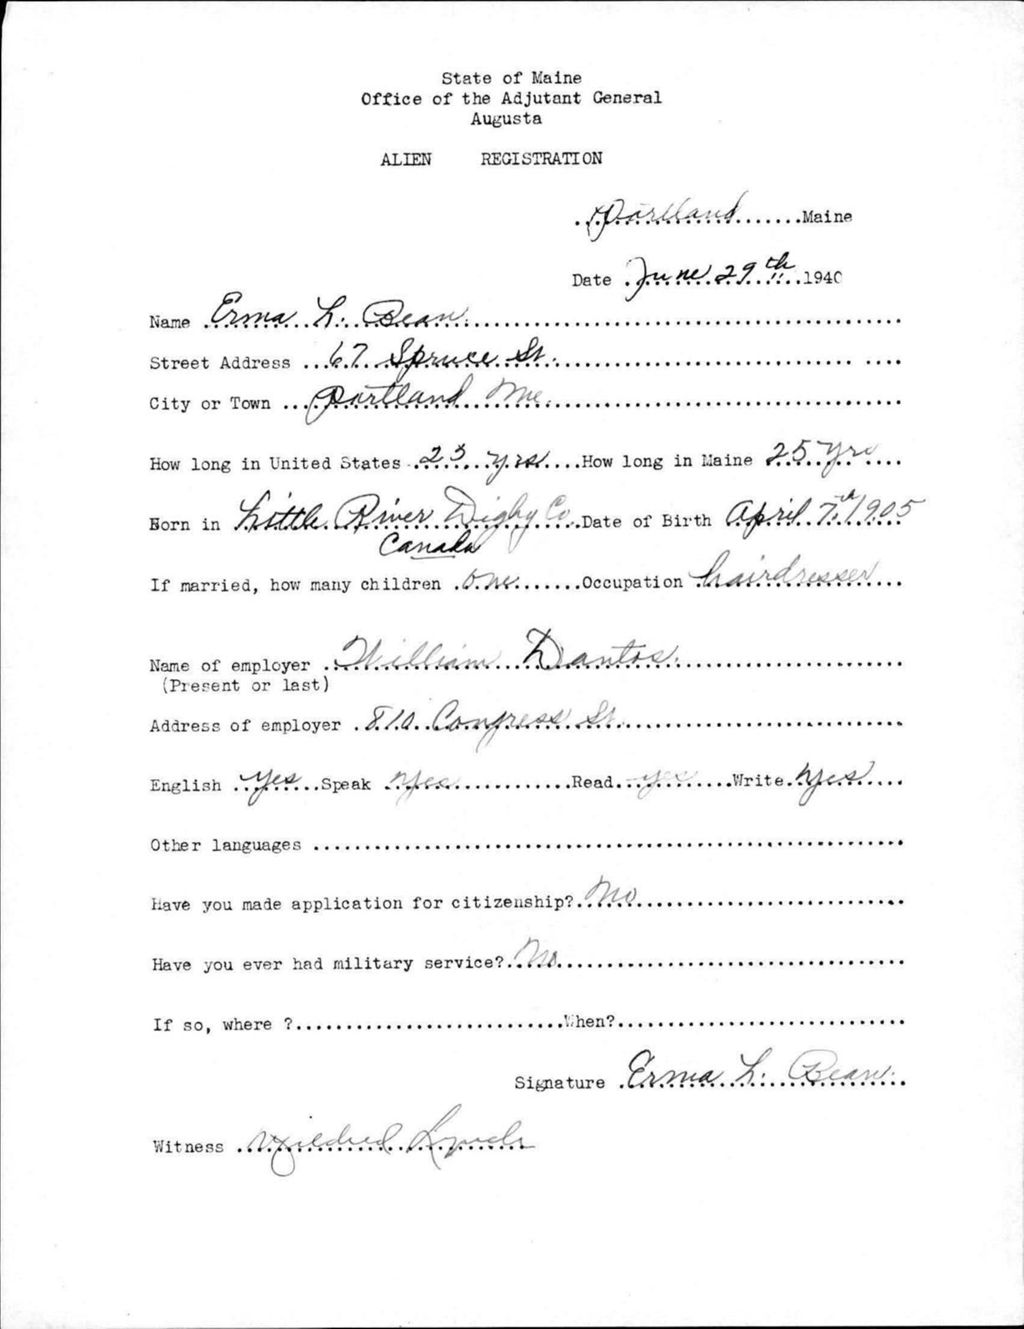 State of Maine
Office of the Adjutant General
Augusta
ALIEN REGISTRATION
Portland Maine
Date June 29th 1940
Name Erma L. Bean
Street Address 67 Spruce St.
City or Town Portland Me.
How long in United States 25 yrs How long in Maine 25 yrs
Born in Little River Digby Co Date of Birth April 7th 1905
Canada
If married, how many children one Occupation hairdresser
Name of employer William Dantos
(Present or last)
Address of employer 810 Congress St.
English yes Speak yes Read yes Write yes
Other languages
Have you made application for citizenship? No
Have you ever had military service? No
If so, where ? When?
Signature Erma L. Bean
Witness Mildred Lynch